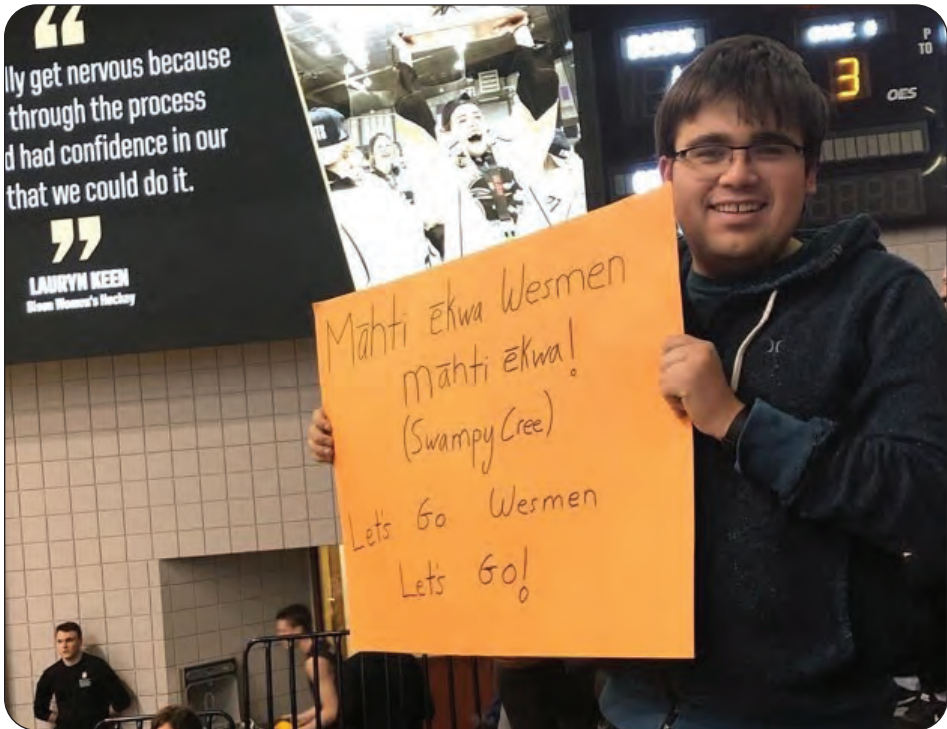 “
lly get nervous because
through the process
d had confidence in our
that we could do it.
”
LAURYN KEEN
Bison Women's Hockey
Māhti ēkwa Wesmen
māhti ēkwa!
(Swampy Cree)
Let's Go Wesmen
Let's Go!
3
P
TO
OES